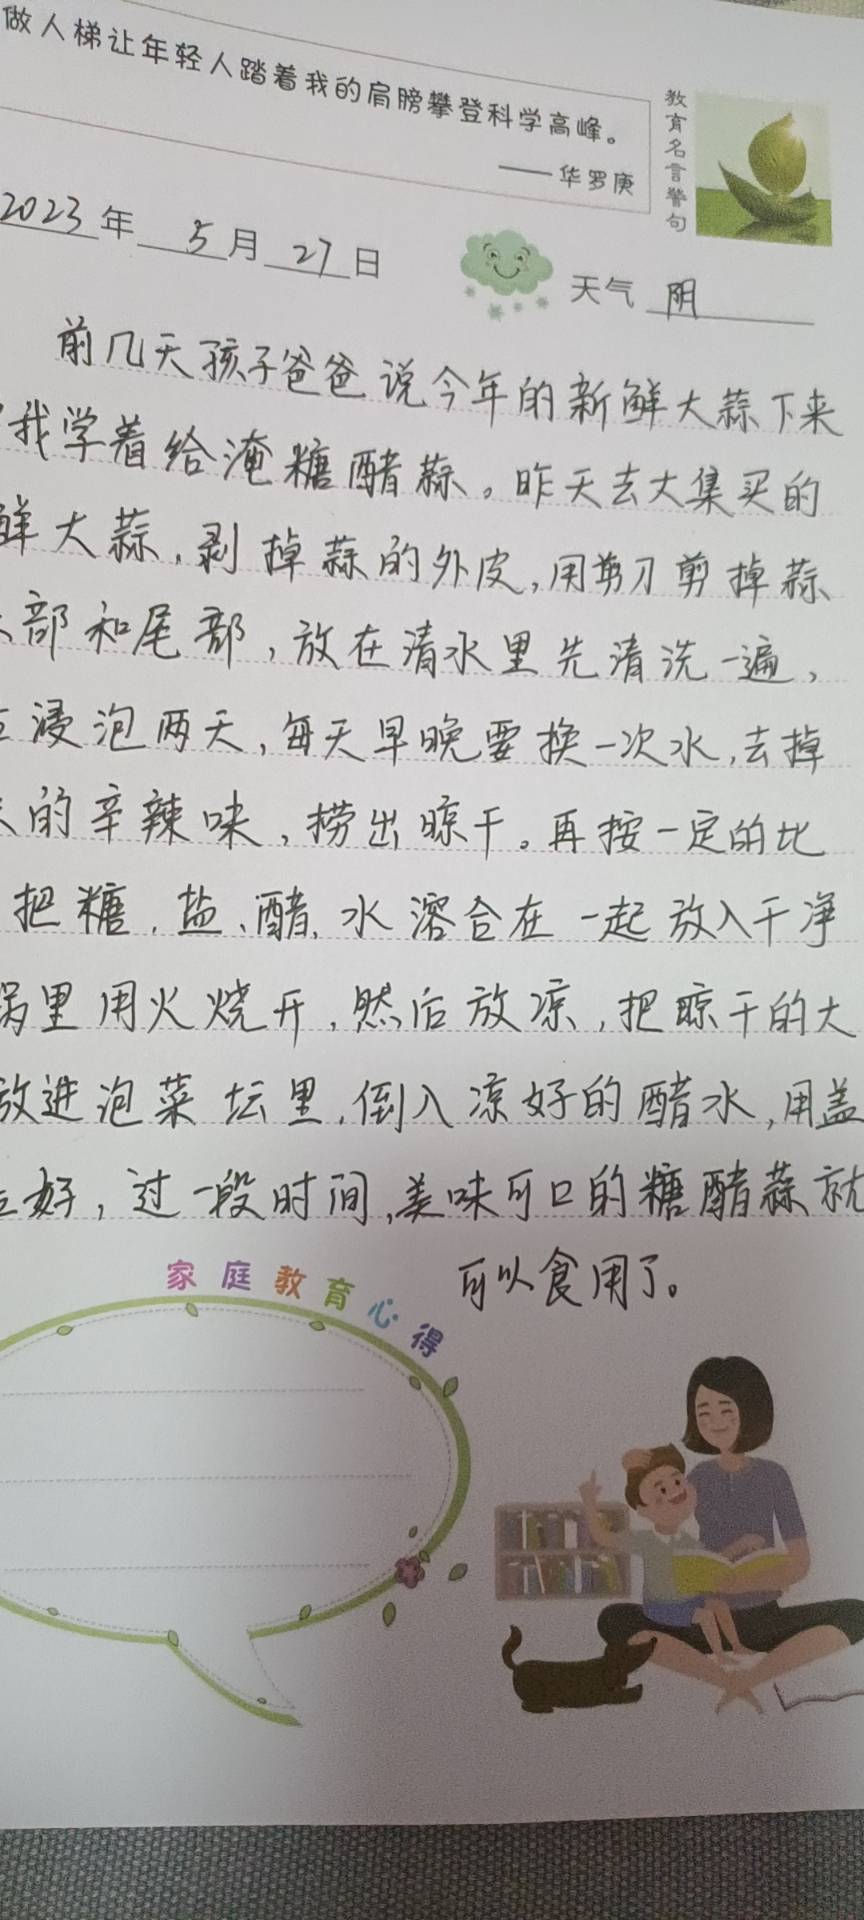 做人梯让年轻人踏着我的肩膀攀登科学高峰。
——华罗庚
教育名言警句
2023年 5月27日
天气 阴
前几天孩子爸爸说今年的新鲜大蒜下来
我学着给淹糖醋蒜。昨天去大集买的
鲜大蒜,剥掉蒜的外皮,用剪刀剪掉蒜
部和尾部,放在清水里先清洗一遍,
浸泡两天,每天早晚要换一次水,去掉
的辛辣味,捞出晾干。再按一定的比
把糖、盐、醋、水溶合在一起放入干净
锅里用火烧开,然后放凉,把晾干的大
放进泡菜坛里,倒入凉好的醋水,用盖
好,过一段时间,美味可口的糖醋蒜就
可以食用了。
家庭教育心得